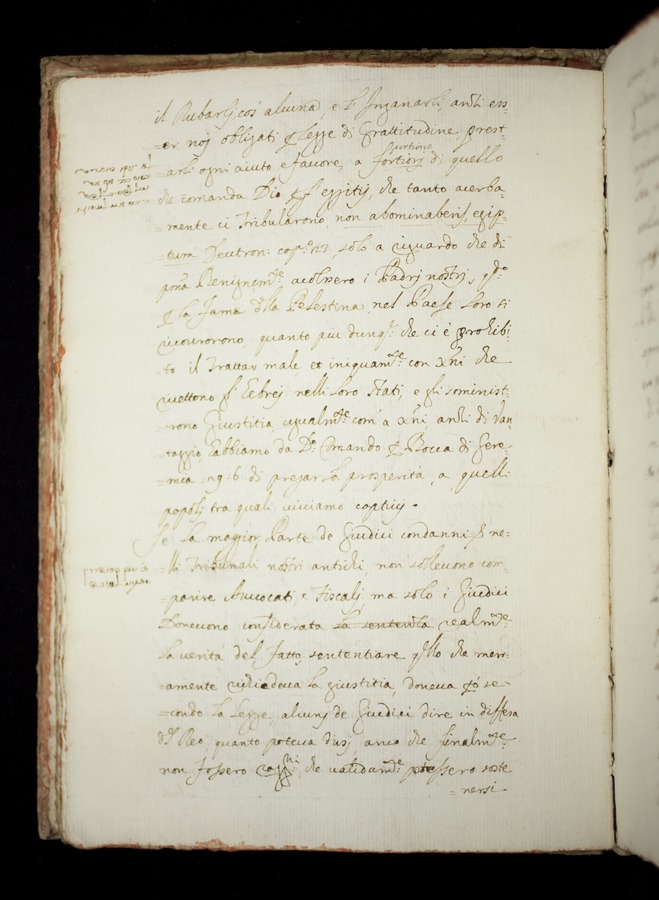 il Rubarli cos' alcuna, e l' Inganarli, anzi ess-
=er noi obligati p legge di Grattitudine prest-
=arli ogni aiuto e favore, a fortiori di quello
portione
che comanda Dio p gl' eggitij, che tanto acerba-
=mente ci Tribularono, non abominaberis egip-
=tium Deutron: cap.º 23, solo a riguardo che di
pma Benignem.te acolsero i Padri nostri, qdo
p la fama dlla Palestina, nel Paese loro si
ricourorono, quanto più dunq, che ci è prohibi-
to il Trattar male et iniquam.te con Xni che
mettono gl' Ebrej nelli loro stati, e gli sominist-
rono Giustitia, ugualm.te com' a Xni, anzi di Van-
taggio habbiamo da D.o Comando p Bocca di Gere-
=mia :29: 6 di pregar la prosperità, a quelli
popoli tra quali viviamo captivi.
Se la maggior Parte de Giudici condanni p ne-
=lli Tribunali nostri antichi, non solevono com-
=parire Avvocati, e Fiscali ma solo i Giudici
Dovevono considerata la sentenza realm.te
la verità del fatto, sententiare qllo che mer-
amente richiedeva la giustitia, doveva però se-
=condo la Legge, alcuni de Giudici dire in diffesa
del Reo, quanto poteva dirsi, anco che finalm.te
non fossero che validam.te potessero soste
=nersi.